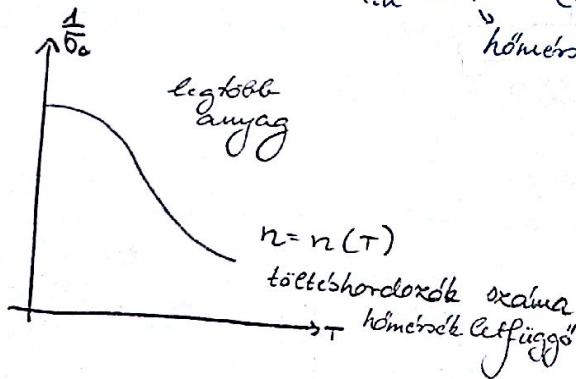 hőmérs
1/σ₀
legtöbb
anyag
n = n(T)
töltéshordozók száma
T hőmérsékletfüggő